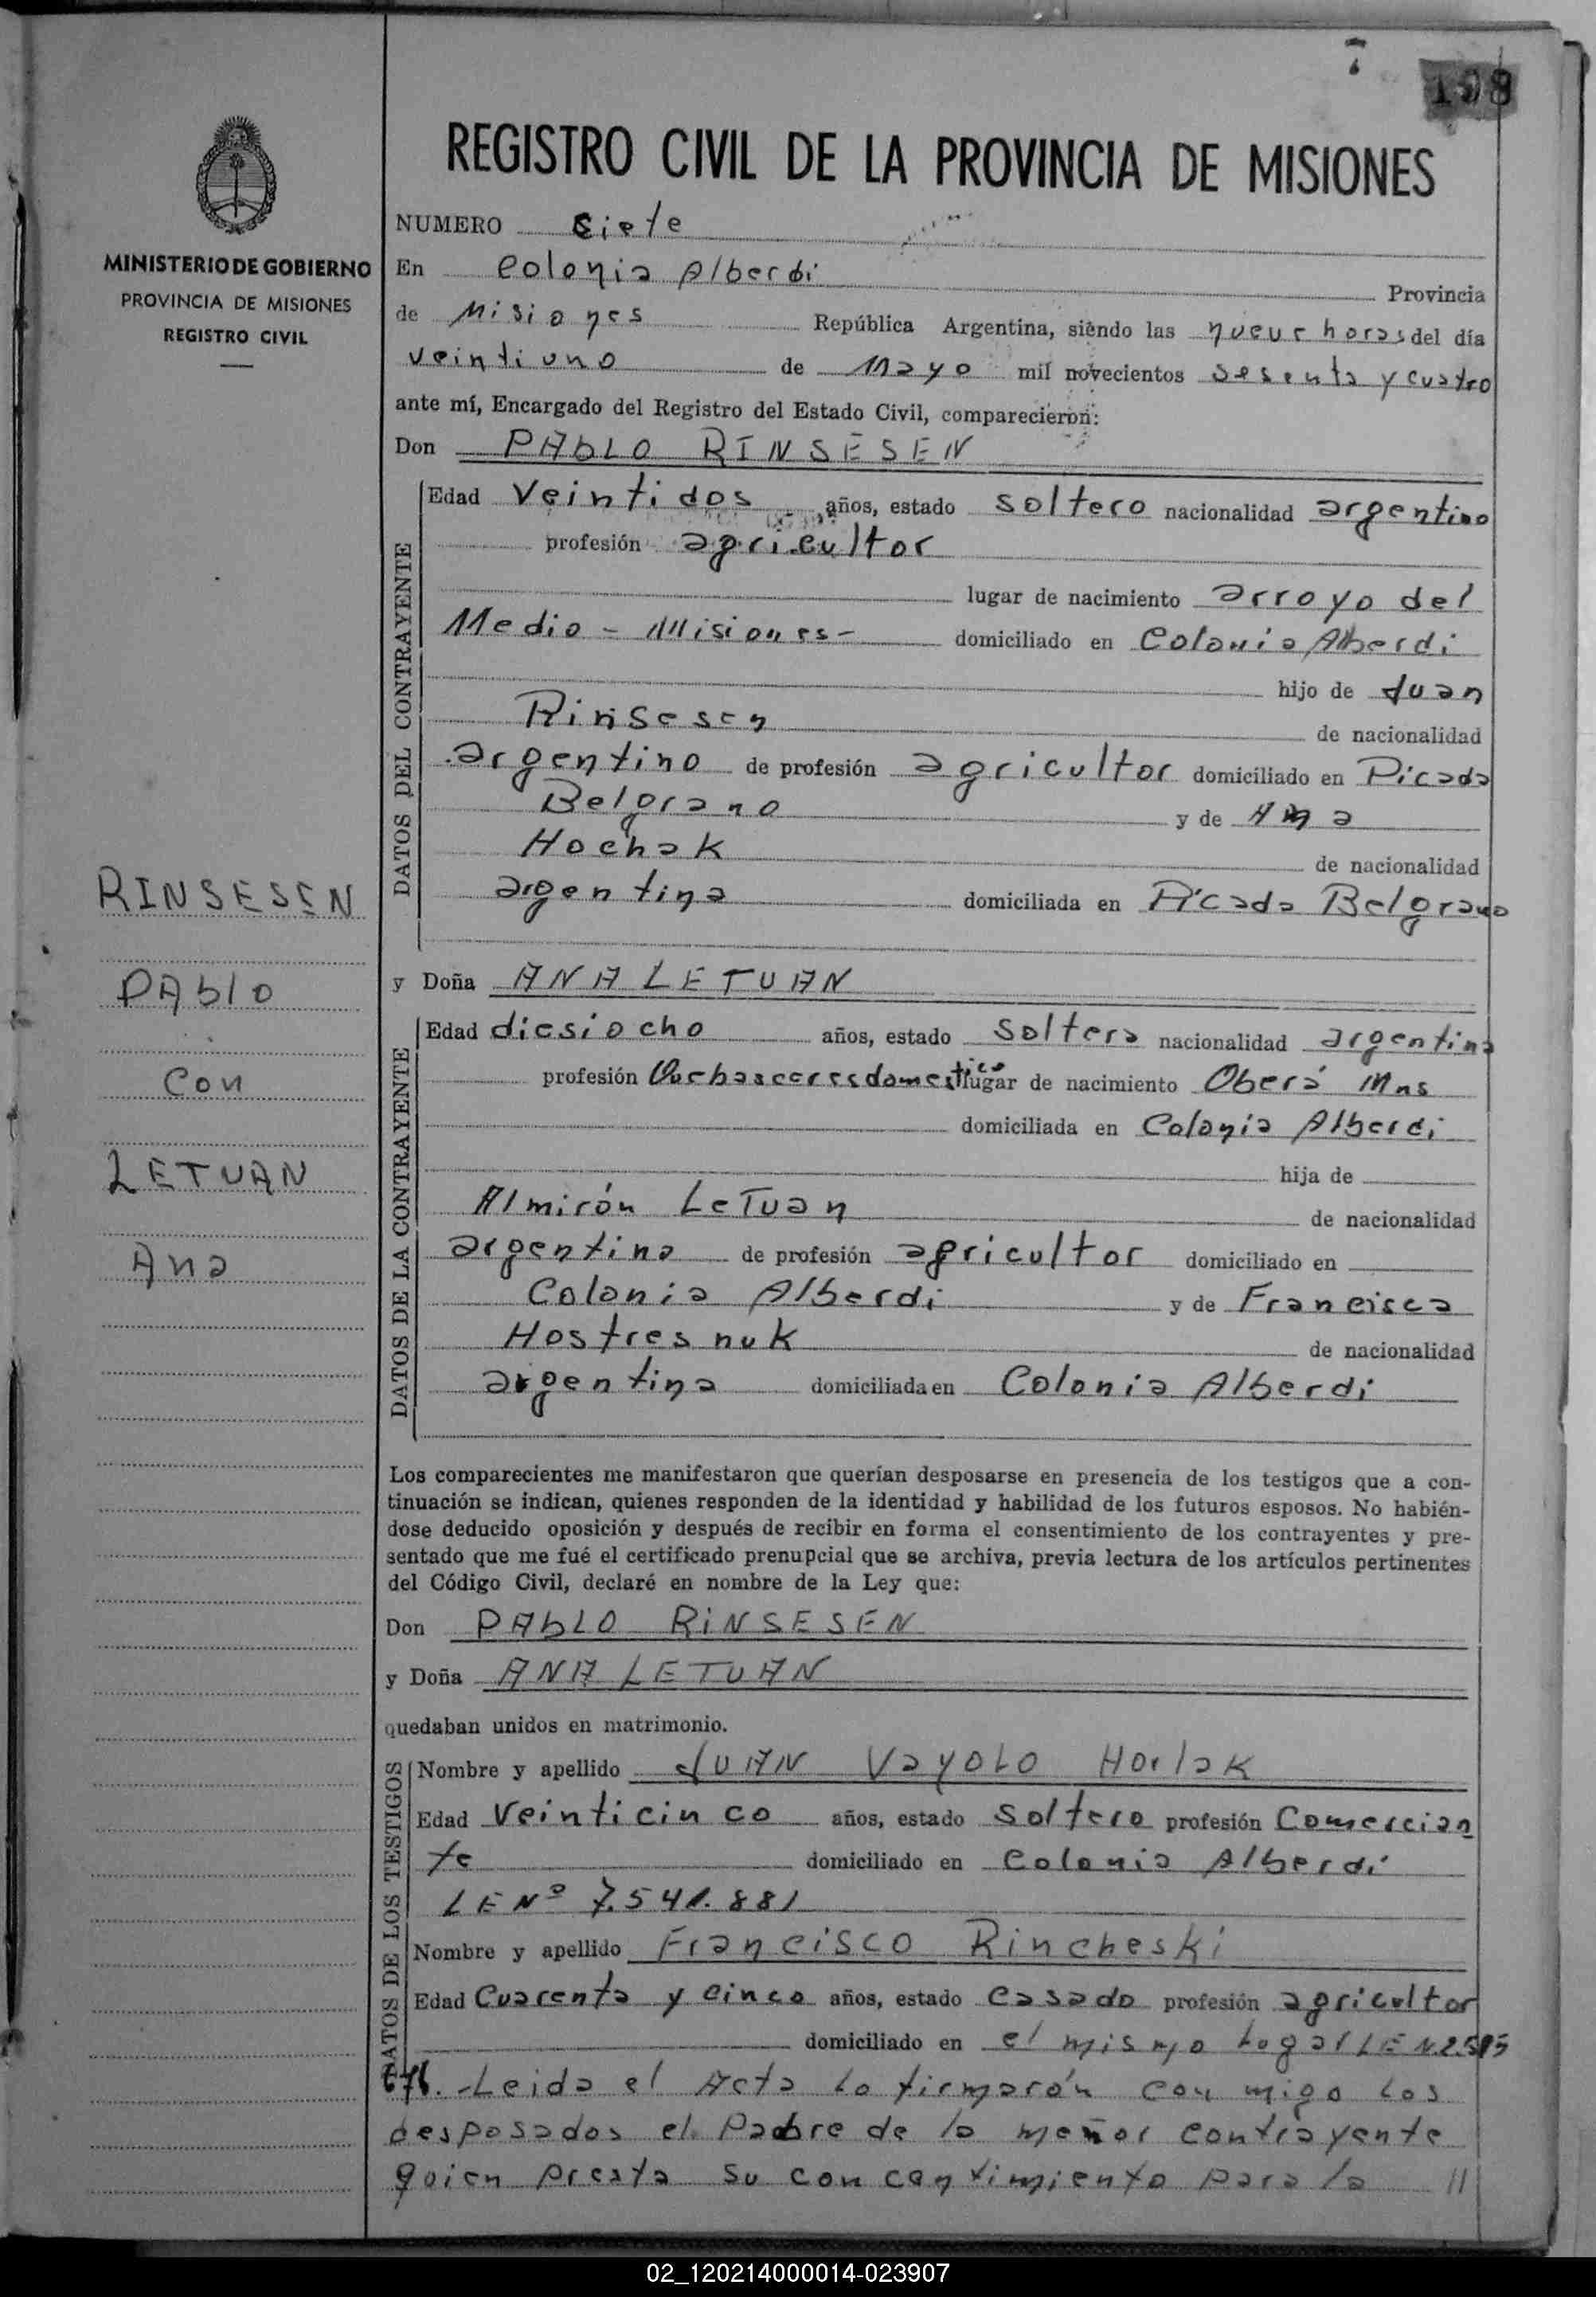 7
198
REGISTRO CIVIL DE LA PROVINCIA DE MISIONES
MINISTERIO DE GOBIERNO
PROVINCIA DE MISIONES
REGISTRO CIVIL
NUMERO siete
En Colonia Alberdi Provincia
de Misiones República Argentina, siendo las nueve horas del día
veintiuno de Mayo mil novecientos sesenta y cuatro
ante mí, Encargado del Registro del Estado Civil, comparecieron:
Don PAbLO RINSESEN
DATOS DEL CONTRAYENTE
Edad Veintidos años, estado soltero nacionalidad argentino
profesión agricultor
lugar de nacimiento arroyo del
Medio - Misiones - domiciliado en Colonia Alberdi
hijo de Juan
Rinsesen de nacionalidad
argentino de profesión agricultor domiciliado en Picada
Belgrano y de Ana
Hochak de nacionalidad
argentina domiciliada en Picada Belgrano
RINSESEN
PAblo
Con
LETUAN
Ana
y Doña ANA LETUAN
DATOS DE LA CONTRAYENTE
Edad diesiocho años, estado soltera nacionalidad argentina
profesión domestico lugar de nacimiento Oberá Mns
domiciliada en Colonia Alberdi
hija de
Almirón LeTuan de nacionalidad
argentino de profesión agricultor domiciliado en
Colonia Alberdi y de Francisca
Hostresnuk de nacionalidad
argentina domiciliada en Colonia Alberdi
Los comparecientes me manifestaron que querían desposarse en presencia de los testigos que a con-
tinuación se indican, quienes responden de la identidad y habilidad de los futuros esposos. No habién-
dose deducido oposición y después de recibir en forma el consentimiento de los contrayentes y pre-
sentado que me fué el certificado prenupcial que se archiva, previa lectura de los artículos pertinentes
del Código Civil, declaré en nombre de la Ley que:
Don PAbLO RiNSESEN
y Doña ANA LETUAN
quedaban unidos en matrimonio.
DATOS DE LOS TESTIGOS
Nombre y apellido JUAN VayOLO Horlak
Edad Veinticinco años, estado soltero profesión Comercian
te domiciliado en Colonia Alberdi
LE Nº 7.541.881
Nombre y apellido Francisco Rincheski
Edad Cuarenta y cinco años, estado casado profesión agricultor
domiciliado en el mismo Lugar LE N 2.585
676. - Leida el Acta La firmarón con migo Los
desposados el Padre de la menor contrayente
quien presta su concentimiento para la //
02_120214000014-023907